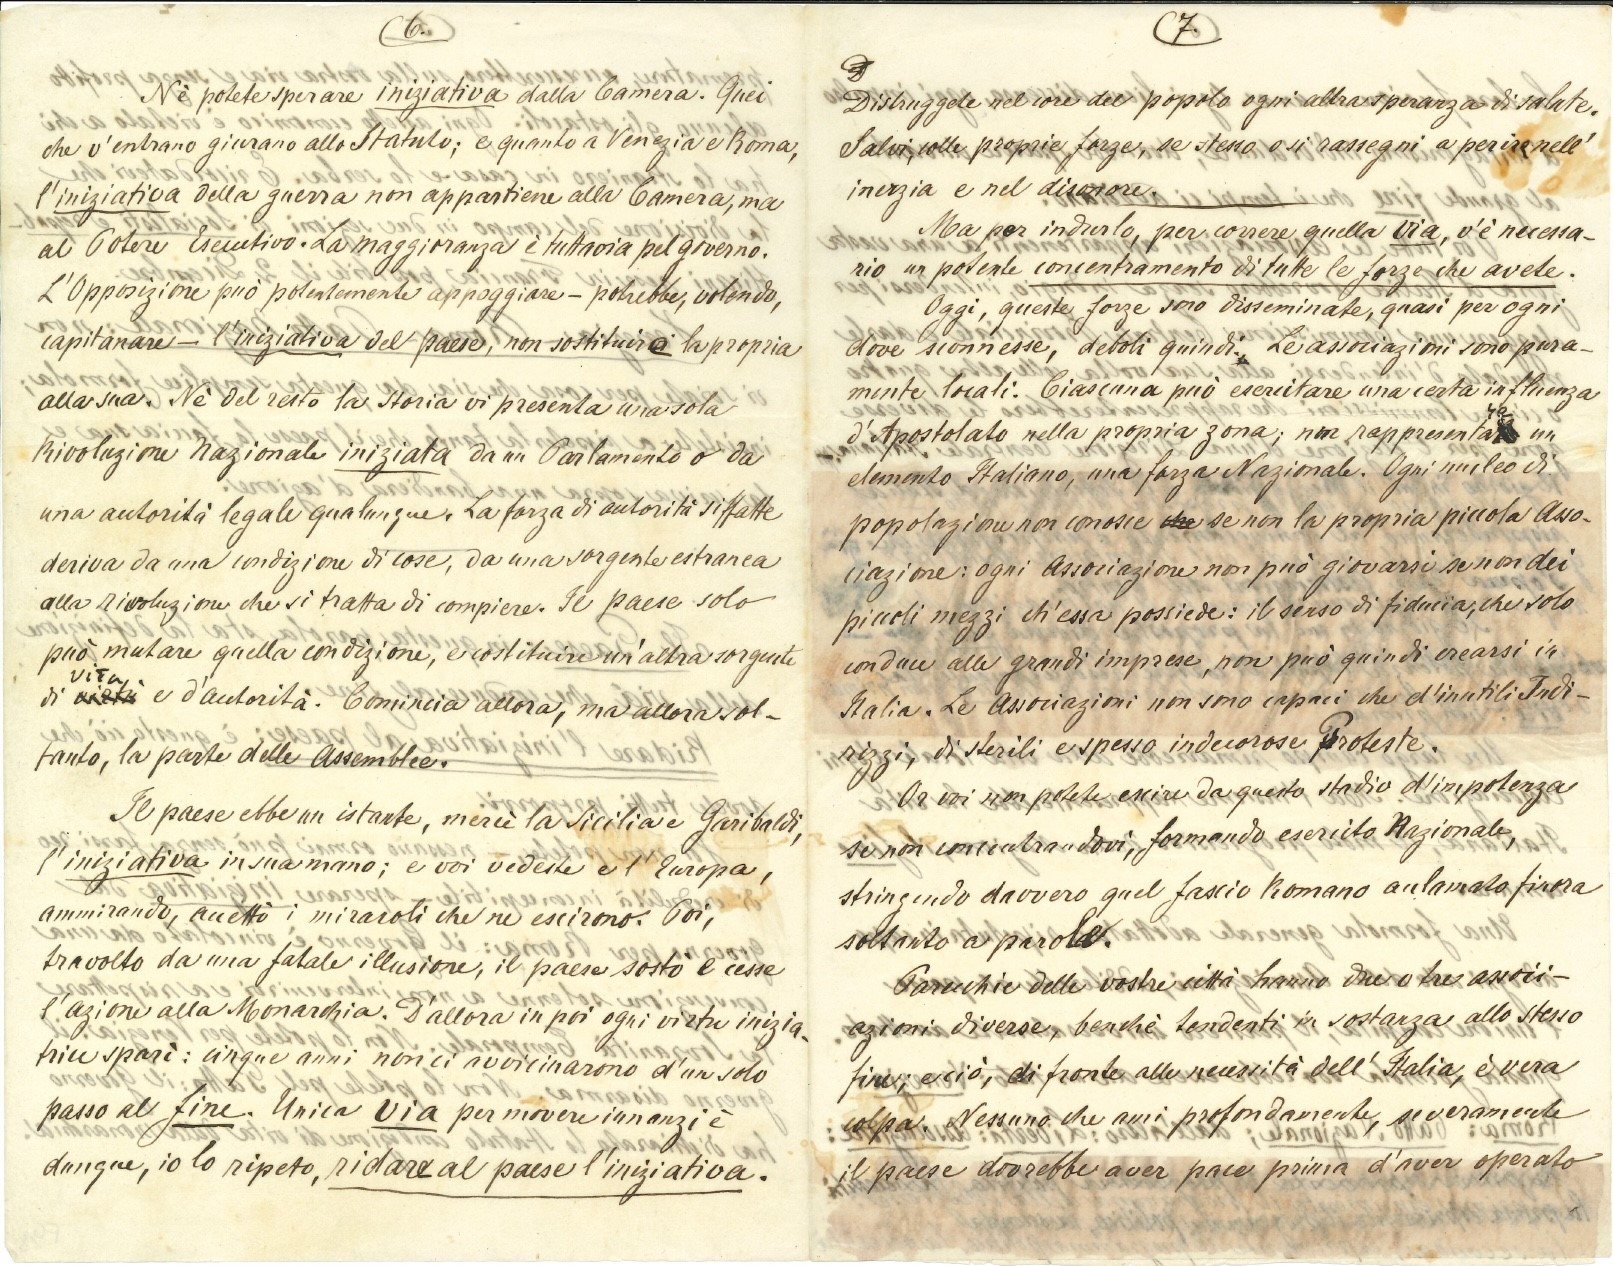 6.
Nè potete sperare iniziativa dalla Camera. Quei
che v'entrano giurano allo Statuto; e quanto a Venezia e Roma,
l'iniziativa della guerra non appartiene alla Camera, ma
al Potere Esecutivo. La maggioranza è tuttavia pel governo.
L'Opposizione può potentemente appoggiare – potrebbe, volendo,
capitanare – l'iniziativa del paese, non sostituire la propria
alla sua. Nè del resto la Storia vi presenta una sola
Rivoluzione Nazionale iniziata da un Parlamento o da
una autorità legale qualunque. La forza di autorità siffatte
deriva da una condizione di cose, da una sorgente estranea
alla rivoluzione che si tratta di compiere. Il paese solo
può mutare quella condizione, e costituire un'altra sorgente
di vita e d'autorità. Comincia allora, ma allora sol-
tanto, la parte delle Assemblee.
Il paese ebbe un istante, mercè la Sicilia e Garibaldi,
l'iniziativa in sua mano; e voi vedeste e l'Europa,
ammirando, accettò i miracoli che ne escirono. Poi,
travolto da una fatale illusione, il paese sostò e cesse
l'azione alla Monarchia. D'allora in poi ogni virtù inizia-
trice sparì: cinque anni non ci avvicinarono d'un solo
passo al fine. Unica via per movere innanzi è
dunque, io lo ripeto, ridare al paese l'iniziativa.
7.
Distruggete nel core del popolo ogni altra speranza di salute.
Salvi, colle proprie forze, se stesso o si rassegni a perire nell'
inerzia e nel disonore.
Ma per indurlo, per correre quella via, v'è necessa-
rio un potente concentramento di tutte le forze che avete.
Oggi, queste forze sono disseminate, quasi per ogni
dove sconnesse, deboli quindi. Le associazioni sono pura-
mente locali. Ciascuna può esercitare una certa influenza
d'Apostolato nella propria zona; non rappresenta un
elemento Italiano, una forza Nazionale. Ogni nucleo di
popolazione non conosce che se non la propria piccola Asso-
ciazione: ogni Associazione non può giovarsi se non dei
piccoli mezzi ch'essa possiede: il senso di fiducia, che solo
conduce alle grandi imprese, non può quindi crearsi in
Italia. Le Associazioni non sono capaci che d'inutili Indi-
rizzi, di sterili e spesso indecorose Proteste.
Or voi non potete escire da questo stadio d'impotenza
se non concentrandovi, formando esercito Nazionale,
stringendo davvero quel fascio Romano acclamato finora
soltanto a parole.
Parecchie delle vostre città hanno due o tre associ-
azioni diverse, benchè tendenti in sostanza allo stesso
fine; e ciò, di fronte alle necessità dell'Italia, è vera
colpa. Nessuno che ami profondamente, severamente
il paese dovrebbe aver pace prima d'aver operato